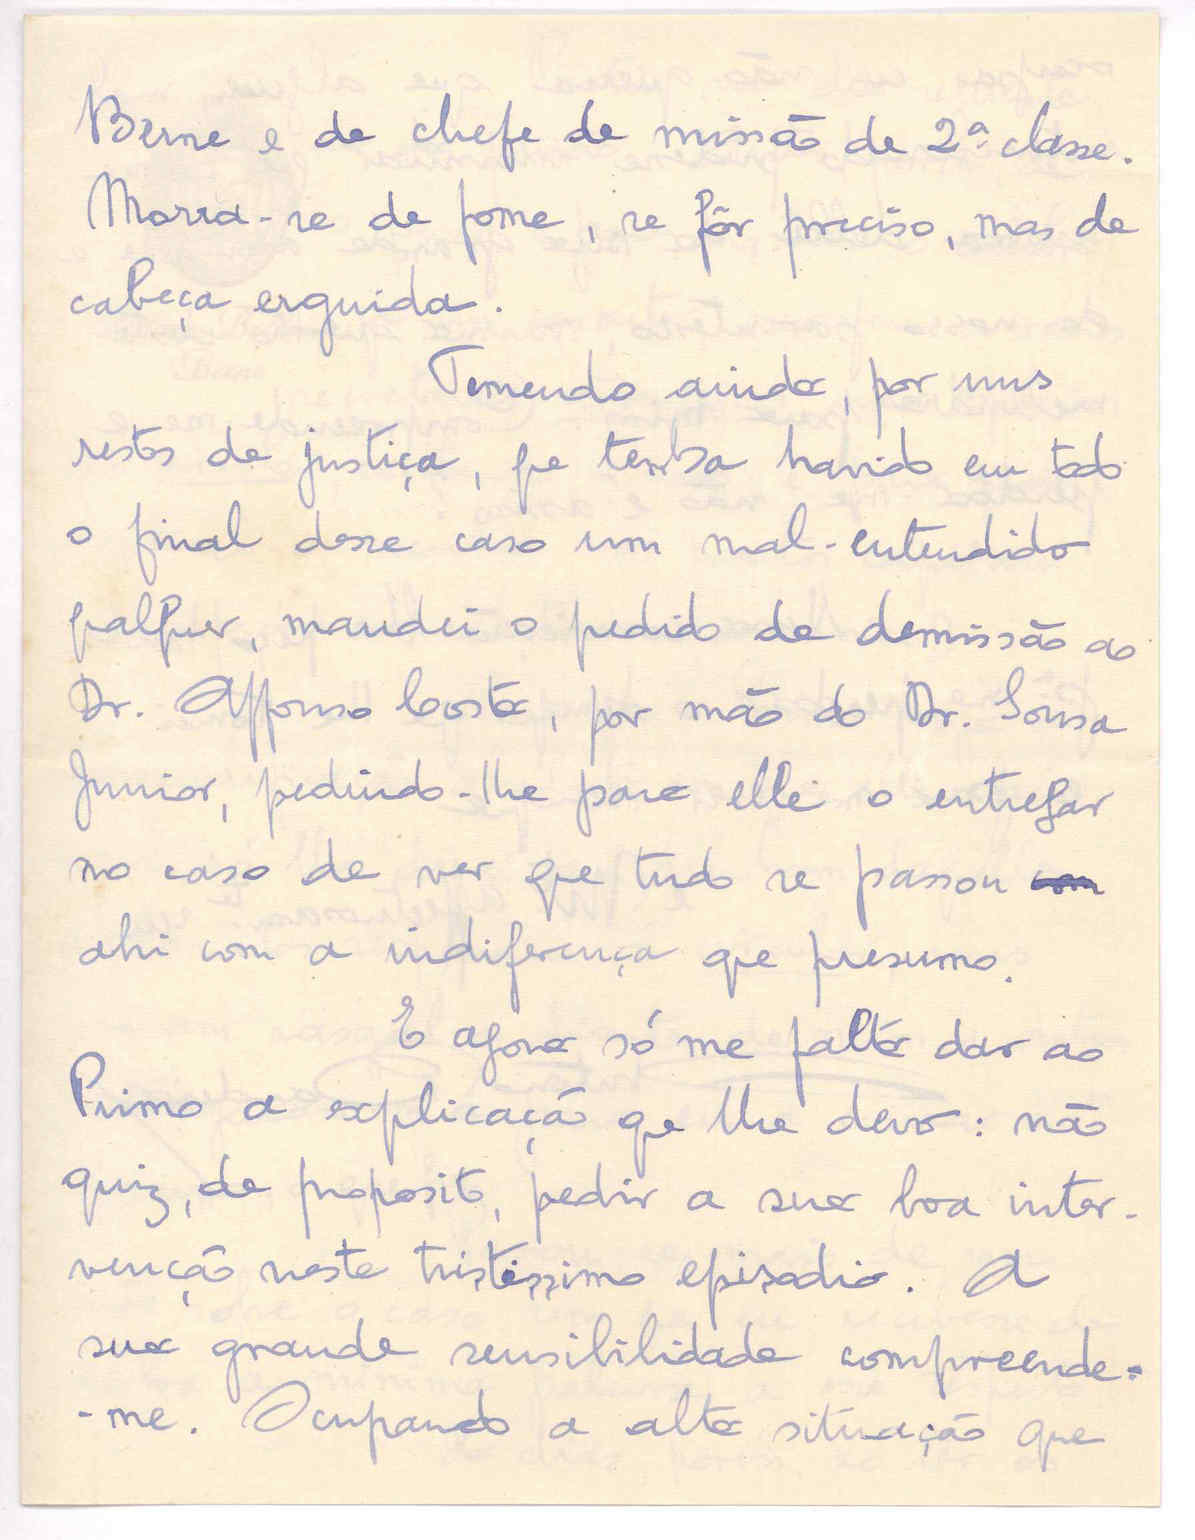 Berne e de chefe de missão de 2ª classe.
Morra-se de fome, se fôr preciso, mas de
cabeça erguida.
Temendo ainda, por uns
restos de justiça, qe tenha havido em todo
o final desse caso um mal-entendido
qualquer, mandei o pedido de demissão ao
Dr. Affonso Costa, por mão do Dr. Sousa
Junior, pedindo-lhe para elle o entregar
no caso de ver que tudo se passou com
ahi com a indiferença que presumo.
E agora só me falta dar ao
Primo a explicação qe lhe devo: não
quiz, de proposito, pedir a sua boa inter-
venção neste tristissimo episodio. A
sua grande sensibilidade compreende-
-me. Ocupando a alta situação que